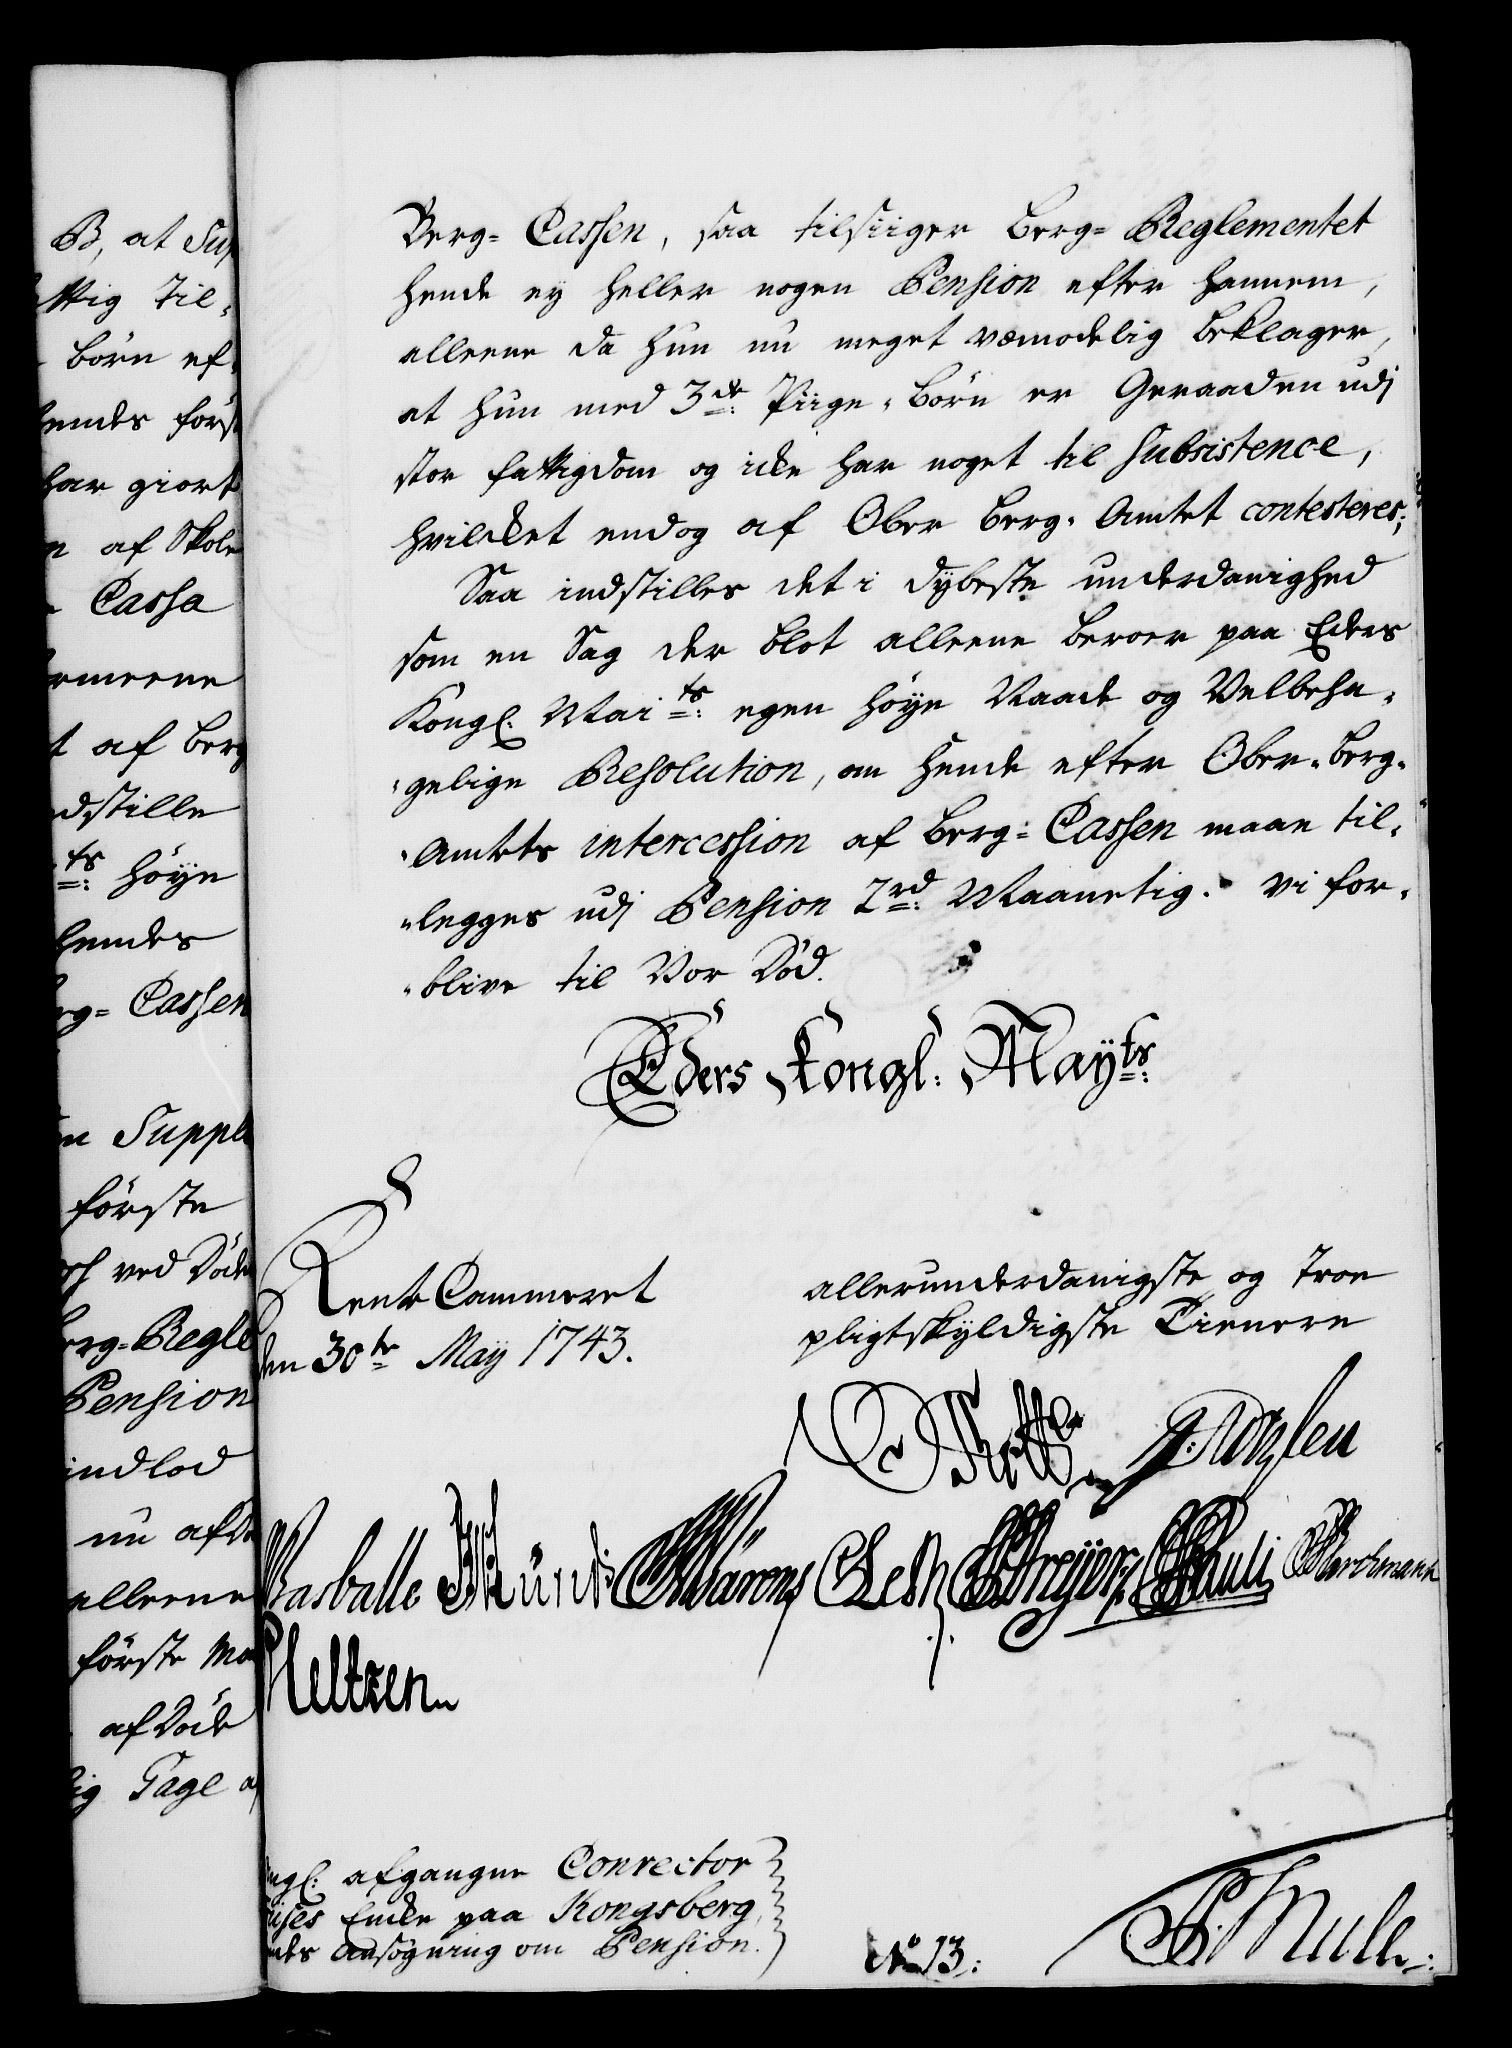 B, at Sup
ttig til-
börn ef-
hendes först
har giort
af Skole
Cassa
ermeene
t af Berg
ndstille
ts: höye
hendes
rg= Cassen
en Suppl
förste
ved Döde
erg=Regle
Pension
indlod
nu afdö
alleene
förste Ma
afdöde
ig Tage a
Berg= Cassen, saa tilsiiger Berg= Reglementet
hende ey heller nogen Pension efter hannem,
alleene da hun nu meget vemodelig beklager,
at hun med 3de: Piige-börn er Geraaden udj
stor fattigdom og icke har noget til Subsistence,
hvilcket endog af Ober Berg-Amtet contesteres;
Saa indstilles det i dÿbeste underdanighed
som en Sag der blot alleene beroer paa Eders
Kongl: Maits: egen höye Naade og Velbeha-
-gelige Resolution, om hende efter Ober-Berg-
-Amtets intercession af Berg=Cassen maae til-
-legges udj Pension 2rd: Maanetlig. Vi for-
-blive til Vor Död.
Eders Kongl: Maÿts:
Rente Cammeret
den 30te Maÿ 1743.
allerunderdanigste og troe
pligtskyldigste Tienere
Rasballe
Pauli
Heltzen
ngl: afgangne Conrector
ises Encke paa Kongsberg,
ndes Ansögning om Pension.
No 13: